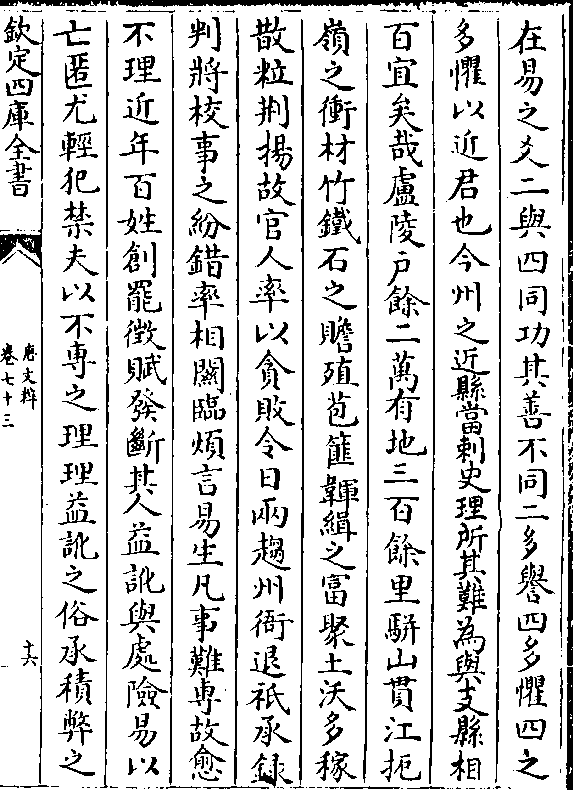 在易之爻二與四同功其善不同二多譽四多懼四之
多懼以近君也今州之近縣當刺史理所其難為與支縣相
百宜矣哉盧陵戶餘二萬有地三百餘里駢山貫江扼
嶺之衝材竹鐵石之贍殖苞篚韗緝之富聚土沃多稼
散粒荆揚故官人率以貪敗令日兩趨州衙退祇承録
判將校事之紛錯率相關臨煩言易生凡事難專故愈
不理近年百姓創罷徴賦發斷其人益訛與處險易以
亡匿尤輕犯禁夫以不專之理理益訛之俗承積弊之
欽定四庫全書
唐文粹
卷七十三
十六